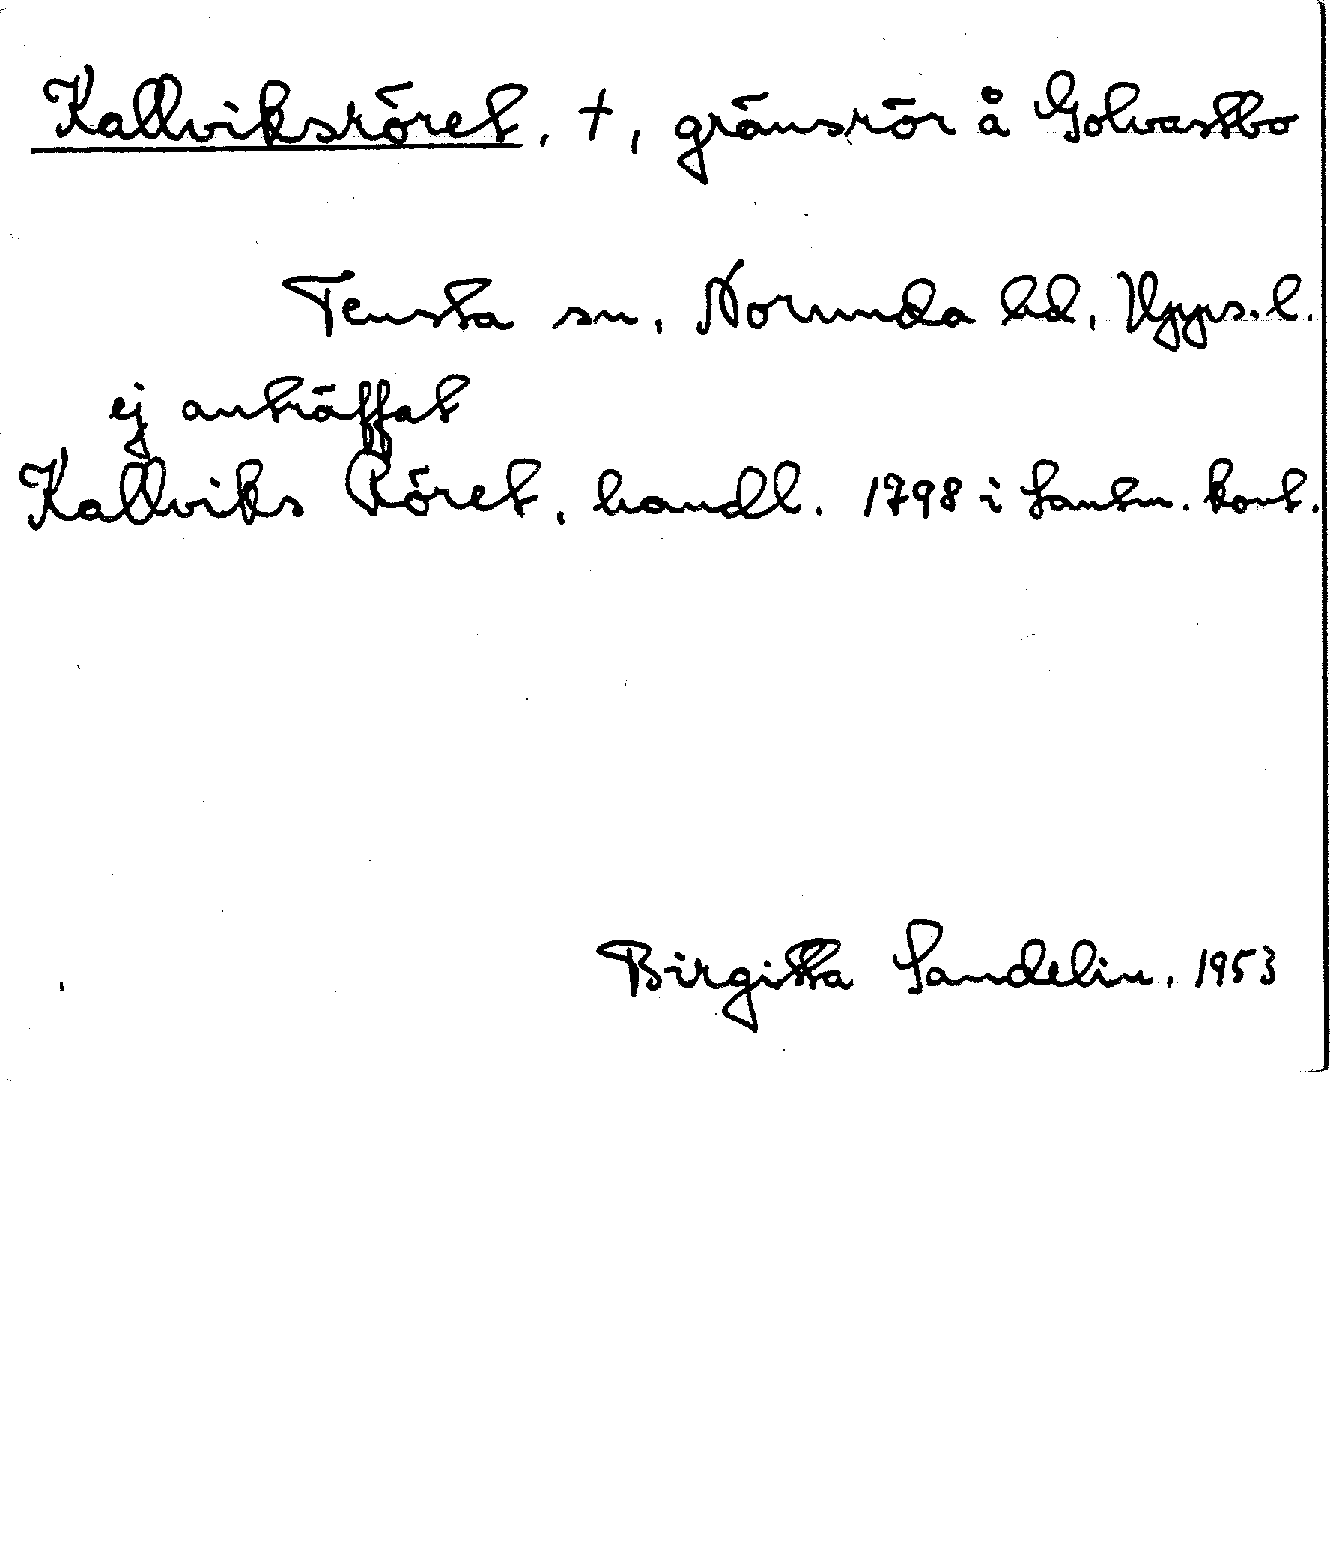 Kallviksröret, †, gränsrör å Golvastbo
Tensta sn, Norunda hd, Upps. l.
ej anträffat
Kallviks Röret, handl. 1798 i Lantm. kont.
Birgitta Sandelin, 1953